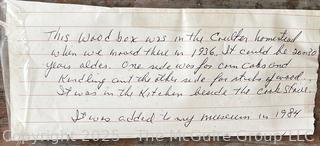 This wood box was in the Coulter homestead
when we moved there in 1936. It could be 20 or 30
years older. One side was for corn cobs and
Kindling and the other side for sticks of wood.
It was in the Kitchen beside the Cook Stove.
It was added to my museum in 1984
Copyright 2023 - The McGuire Group LLC